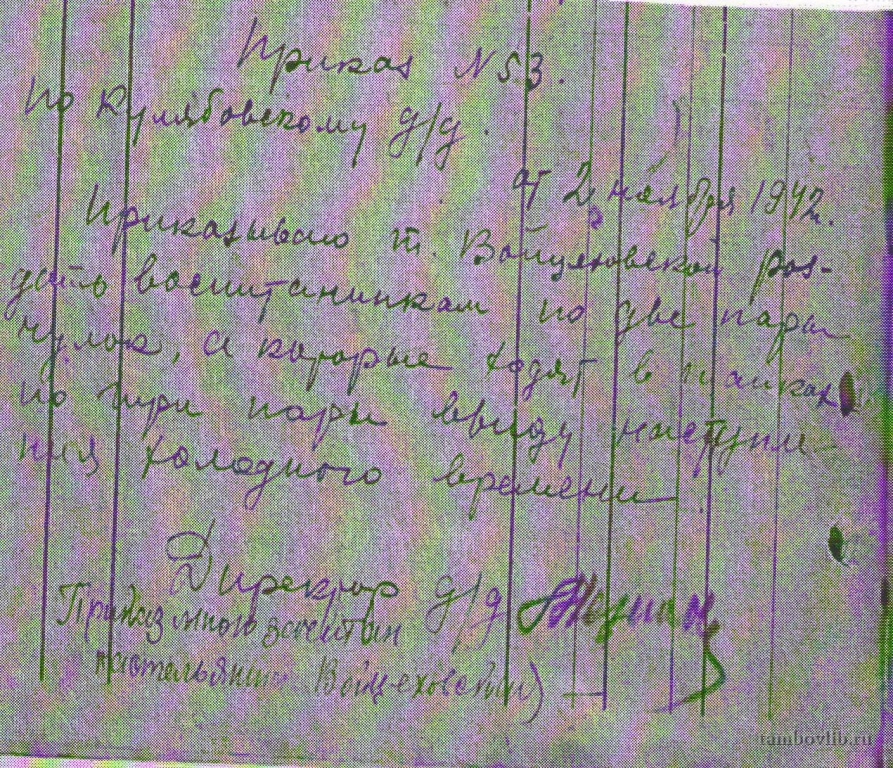 Приказ N 53.
По Кулябовскому д/д.
от 2 ноября 1942г.
Приказываю т. Войцеховской раз-
дать воспитанникам по две пары
чулок, а которые ходят в тапках
по три пары ввиду наступле-
ния холодного времени.
Директор д/д
Приказ мною зачитан
кастелянши Войцеховский)
tambovlib.ru